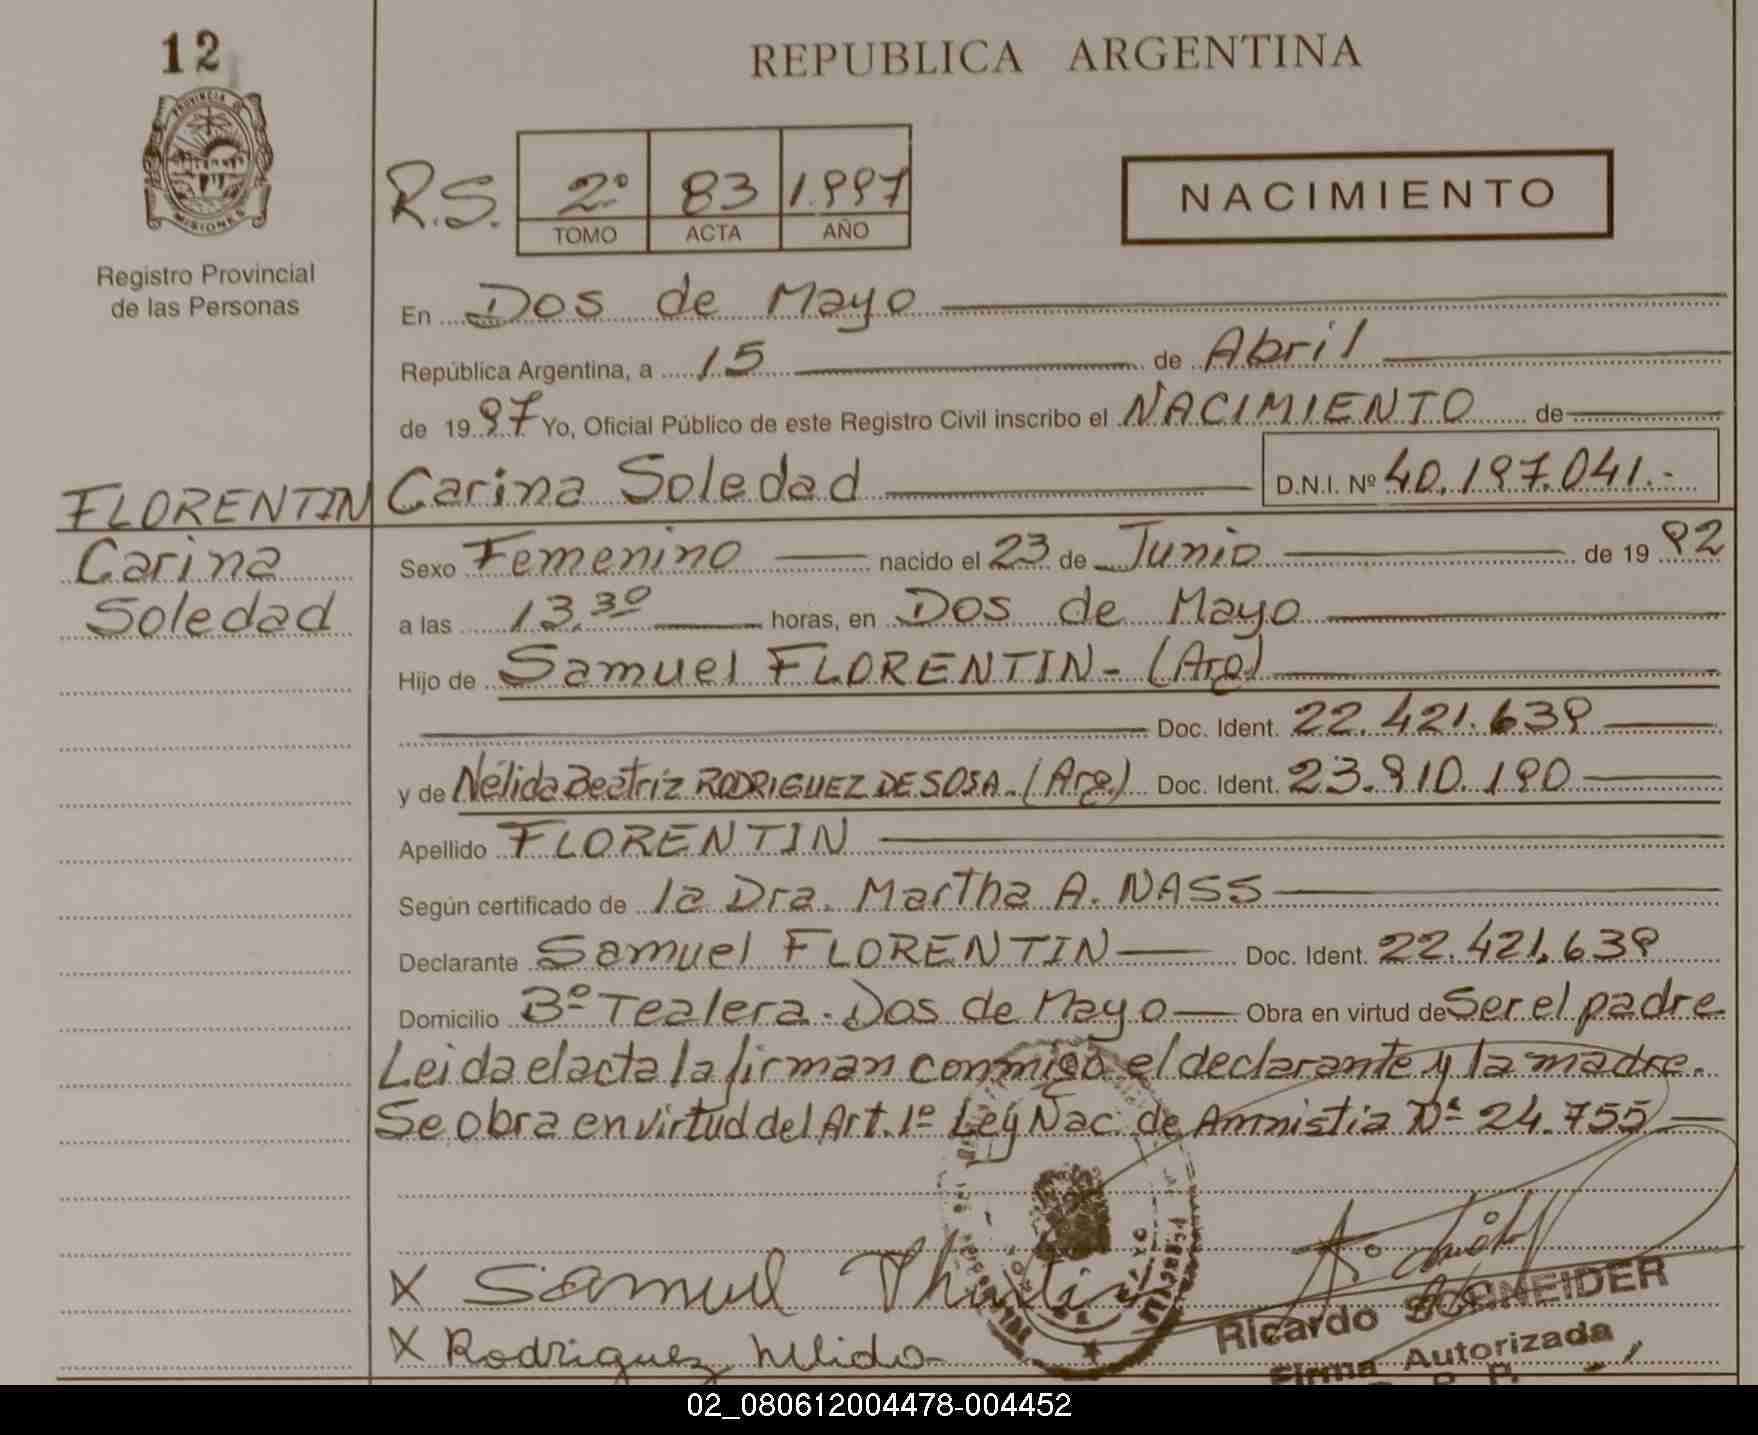 12
REPUBLICA ARGENTINA
PROVINCIA DE
MISIONES
R.S. 2º 83 1.997
TOMO ACTA AÑO
NACIMIENTO
Registro Provincial
de las Personas
En Dos de Mayo
República Argentina, a 15 de Abril
de 1997 Yo, Oficial Público de este Registro Civil inscribo el NACIMIENTO de
FLORENTIN Carina Soledad D.N.I. Nº 40.197.041.-
Carina
Soledad
Sexo Femenino nacido el 23 de Junio de 1992
a las 13.30 horas, en Dos de Mayo
Hijo de Samuel FLORENTIN - (Arg)
Doc. Ident. 22.421.639
y de Nélida Beatriz RODRIGUEZ DE SOSA.(Arg.) Doc. Ident. 23.910.190
Apellido FLORENTIN
Según certificado de la Dra. Martha A. NASS
Declarante Samuel FLORENTIN Doc. Ident. 22.421.639
Domicilio Bº Tealera. Dos de Mayo Obra en virtud de Ser el padre
Leida el acta la firman conmigo el declarante y la madre.
Se obra en virtud del Art. 1º Ley Nac. de Amnistia Nº 24.755
X Samuel
Ricardo SCHNEIDER
X Rodriguez Nelida
Firma Autorizada
02_080612004478-004452